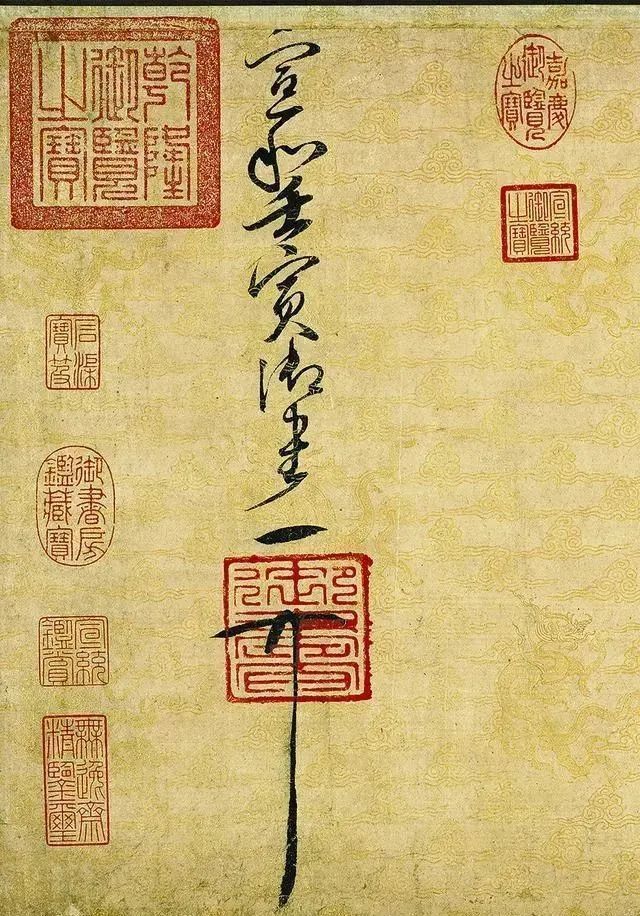 嘉慶御覽之寶
宣統御覽之寶
宣和壬寅御書
御書
乾隆御覽之寶
石渠寶笈
御書房鑑藏寶
宣統鑑賞
無逸齋精鑒璽